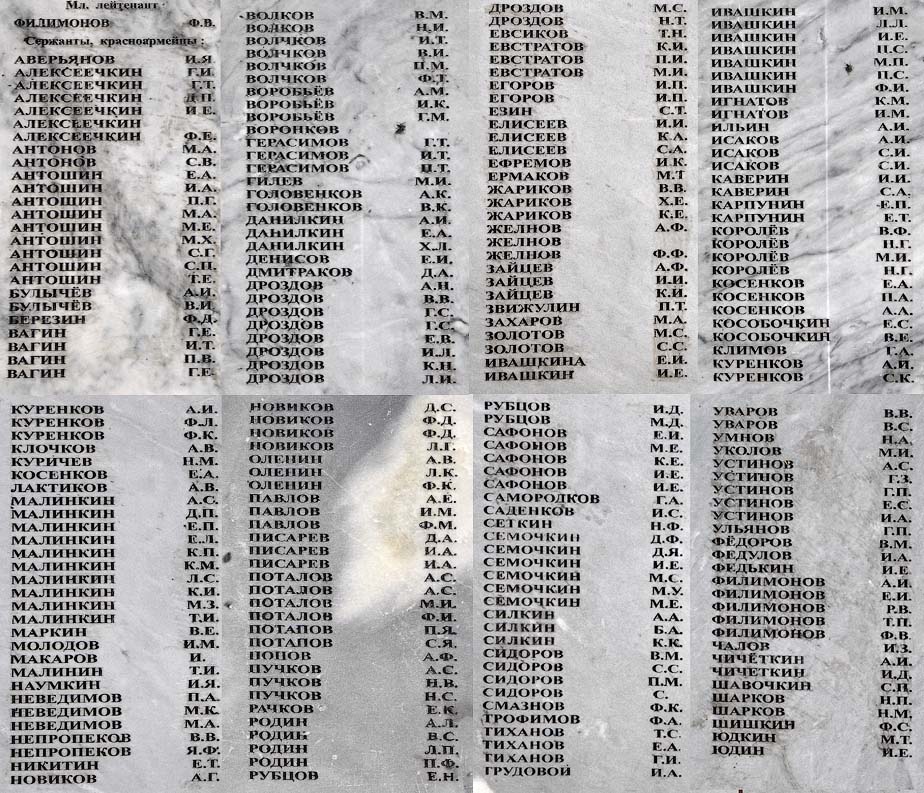 Мл. лейтенант
ФИЛИМОНОВ Ф.В.
Сержанты, красноармейцы:
АВЕРЬЯНОВ И.Я
АЛЕКСЕЕЧКИН Г.И.
АЛЕКСЕЕЧКИН Г.Т.
АЛЕКСЕЕЧКИН Д.П.
АЛЕКСЕЕЧКИН И.Е.
АЛЕКСЕЕЧКИН
АЛЕКСЕЕЧКИН Ф.Е.
АНТОНОВ М.А.
АНТОНОВ С.В.
АНТОШИН Е.А.
АНТОШИН И.А.
АНТОШИН П.Г.
АНТОШИН М.А.
АНТОШИН М.Е.
АНТОШИН М.Х.
АНТОШИН С.Г.
АНТОШИН С.П.
АНТОШИН Т.Е.
БУЛЫЧЁВ А.И.
БУЛЫЧЁВ В.И.
БЕРЕЗИН Ф.Д.
ВАГИН Г.Е.
ВАГИН И.Т.
ВАГИН П.В.
ВАГИН Г.Е.
ВОЛКОВ В.М.
ВОЛКОВ Н.И.
ВОЛЧКОВ И.Т.
ВОЛЧКОВ В.И.
ВОЛЧКОВ П.М.
ВОЛЧКОВ Ф.Т.
ВОРОБЬЁВ А.М.
ВОРОБЬЁВ И.К.
ВОРОБЬЁВ Г.М.
ВОРОНКОВ
ГЕРАСИМОВ Г.Т.
ГЕРАСИМОВ И.Т.
ГЕРАСИМОВ П.Т.
ГИЛЕВ М.И.
ГОЛОВЕНКОВ А.К.
ГОЛОВЕНКОВ В.К.
ДАНИЛКИН А.И.
ДАНИЛКИН Е.А.
ДАНИЛКИН Х.Л.
ДЕНИСОВ Е.И.
ДМИТРАКОВ Д.А.
ДРОЗДОВ А.Н.
ДРОЗДОВ В.В.
ДРОЗДОВ Г.С.
ДРОЗДОВ Г.С.
ДРОЗДОВ Е.В.
ДРОЗДОВ И.Л.
ДРОЗДОВ К.Н.
ДРОЗДОВ Л.И.
ДРОЗДОВ М.С.
ДРОЗДОВ Н.Т.
ЕВСИКОВ Т.Н.
ЕВСТРАТОВ К.И.
ЕВСТРАТОВ П.И.
ЕВСТРАТОВ М.И.
ЕГОРОВ И.П.
ЕГОРОВ И.П.
ЕЗИН С.Т.
ЕЛИСЕЕВ И.И.
ЕЛИСЕЕВ К.А.
ЕЛИСЕЕВ С.А.
ЕФРЕМОВ И.К.
ЕРМАКОВ М.Т
ЖАРИКОВ В.В.
ЖАРИКОВ Х.Е.
ЖАРИКОВ К.Е.
ЖЕЛНОВ А.Ф.
ЖЕЛНОВ
ЖЕЛНОВ Ф.Ф.
ЗАЙЦЕВ А.Ф.
ЗАЙЦЕВ И.И.
ЗАЙЦЕВ К.И.
ЗВИЖУЛИН П.Т.
ЗАХАРОВ М.А.
ЗОЛОТОВ М.С.
ЗОЛОТОВ С.С.
ИВАШКИНА Е.И.
ИВАШКИН И.Е.
ИВАШКИН И.М.
ИВАШКИН Л.Л.
ИВАШКИН И.Е.
ИВАШКИН П.С.
ИВАШКИН М.П.
ИВАШКИН П.С.
ИВАШКИН Ф.И.
ИГНАТОВ К.М.
ИГНАТОВ И.М.
ИЛЬИН А.И.
ИСАКОВ А.И.
ИСАКОВ С.И.
ИСАКОВ С.И.
КАВЕРИН И.И.
КАВЕРИН С.А.
КАРПУНИН Е.П.
КАРПУНИН Е.Т.
КОРОЛЁВ В.Ф.
КОРОЛЁВ Н.Г.
КОРОЛЁВ М.И.
КОРОЛЁВ Н.Г.
КОСЕНКОВ Е.А.
КОСЕНКОВ П.А.
КОСЕНКОВ А.А.
КОСОБОЧКИН Е.С.
КОСОБОЧКИН В.Е.
КЛИМОВ Г.А.
КУРЕНКОВ А.И.
КУРЕНКОВ С.К.
КУРЕНКОВ А.И.
КУРЕНКОВ Ф.Л.
КУРЕНКОВ Ф.К.
КЛОЧКОВ А.В.
КУРИЧЕВ Н.М.
КОСЕНКОВ Е.А.
ЛАКТИКОВ А.В.
МАЛИНКИН А.С.
МАЛИНКИН Д.П.
МАЛИНКИН Е.П.
МАЛИНКИН Е.Л.
МАЛИНКИН К.П.
МАЛИНКИН К.М.
МАЛИНКИН Л.С.
МАЛИНКИН К.И.
МАЛИНКИН М.З.
МАЛИНКИН Т.И.
МАРКИН В.Е.
МОЛОДОВ И.М.
МАКАРОВ И.
МАЛИНИН Т.И.
НАУМКИН И.Я.
НЕВЕДИМОВ П.А.
НЕВЕДИМОВ М.К.
НЕВЕДИМОВ М.А.
НЕПРОПЕКОВ В.В.
НЕПРОПЕКОВ Я.Ф.
НИКИТИН Е.Т.
НОВИКОВ А.Г.
НОВИКОВ Д.С.
НОВИКОВ Ф.Д.
НОВИКОВ Ф.Д.
НОВИКОВ Л.Г.
ОЛЕНИН А.В.
ОЛЕНИН Л.К.
ОЛЕНИН Ф.К.
ПАВЛОВ А.Е.
ПАВЛОВ И.М.
ПАВЛОВ Ф.М.
ПИСАРЕВ Д.А.
ПИСАРЕВ И.А.
ПИСАРЕВ И.А.
ПОТАЛОВ А.С.
ПОТАЛОВ А.С.
ПОТАЛОВ М.И.
ПОТАЛОВ Ф.И.
ПОТАПОВ П.Я.
ПОТАПОВ С.Я.
ПОПОВ А.Ф.
ПУЧКОВ А.С.
ПУЧКОВ Н.В.
ПУЧКОВ Н.С.
РАЧКОВ Е.К.
РОДИН А.Л.
РОДИБ В.С.
РОДИН Л.П.
РОДИН П.Ф.
РУБЦОВ Е.Н.
РУБЦОВ И.Д.
РУБЦОВ М.Д.
САФОНОВ Е.И.
САФОНОВ М.Е.
САФОНОВ К.Е.
САФОНОВ И.Е.
САФОНОВ И.Е.
САМОРОДКОВ Г.А.
САДЕНКОВ И.С.
СЕТКИН Н.Ф.
СЕМОЧКИН Д.Ф.
СЕМОЧКИН Д.Я.
СЕМОЧКИН И.Е.
СЕМОЧКИН М.С.
СЕМОЧКИН М.У.
СЕМОЧКИН М.Е.
СИЛКИН А.А.
СИЛКИН Б.А.
СИЛКИН К.К.
СИДОРОВ В.М.
СИДОРОВ С.С.
СИДОРОВ П.М.
СИДОРОВ С.
СМАЗНОВ Ф.К.
ТРОФИМОВ Ф.А.
ТИХАНОВ Т.С.
ТИХАНОВ Е.А.
ТИХАНОВ Г.И.
ГРУДОВОЙ И.А.
УВАРОВ В.В.
УВАРОВ В.С.
УМНОВ Н.А.
УКОЛОВ М.И.
УСТИНОВ А.С.
УСТИНОВ Г.З.
УСТИНОВ Г.П.
УСТИНОВ Е.С.
УСТИНОВ И.С.
УЛЬЯНОВ Г.П.
ФЁДОРОВ В.М.
ФЕДУЛОВ И.А.
ФЕДЬКИН И.Е.
ФИЛИМОНОВ А.И.
ФИЛИМОНОВ Е.И.
ФИЛИМОНОВ Р.В.
ФИЛИМОНОВ Т.П.
ФИЛИМОНОВ Ф.В.
ЧАЛОВ И.З.
ЧИЧЁТКИН А.И.
ЧИЧЕТКИН И.Д.
ШАВОЧКИН С.П.
ШАРКОВ Н.П.
ШАРКОВ Н.М.
ШИШКИН Ф.С.
ЮДКИН М.Т.
ЮДИН И.Е.